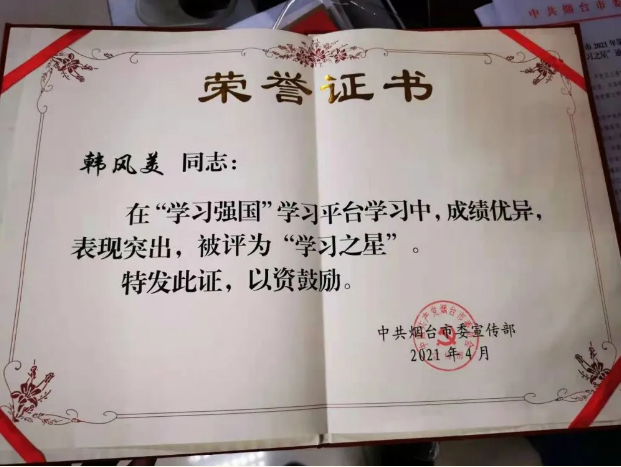 中共烟台市委
荣誉证书
韩风美 同志：
在“学习强国”学习平台学习中，成绩优异，
表现突出，被评为“学习之星”。
特发此证，以资鼓励。
中共烟台市委宣传部
2021年4月